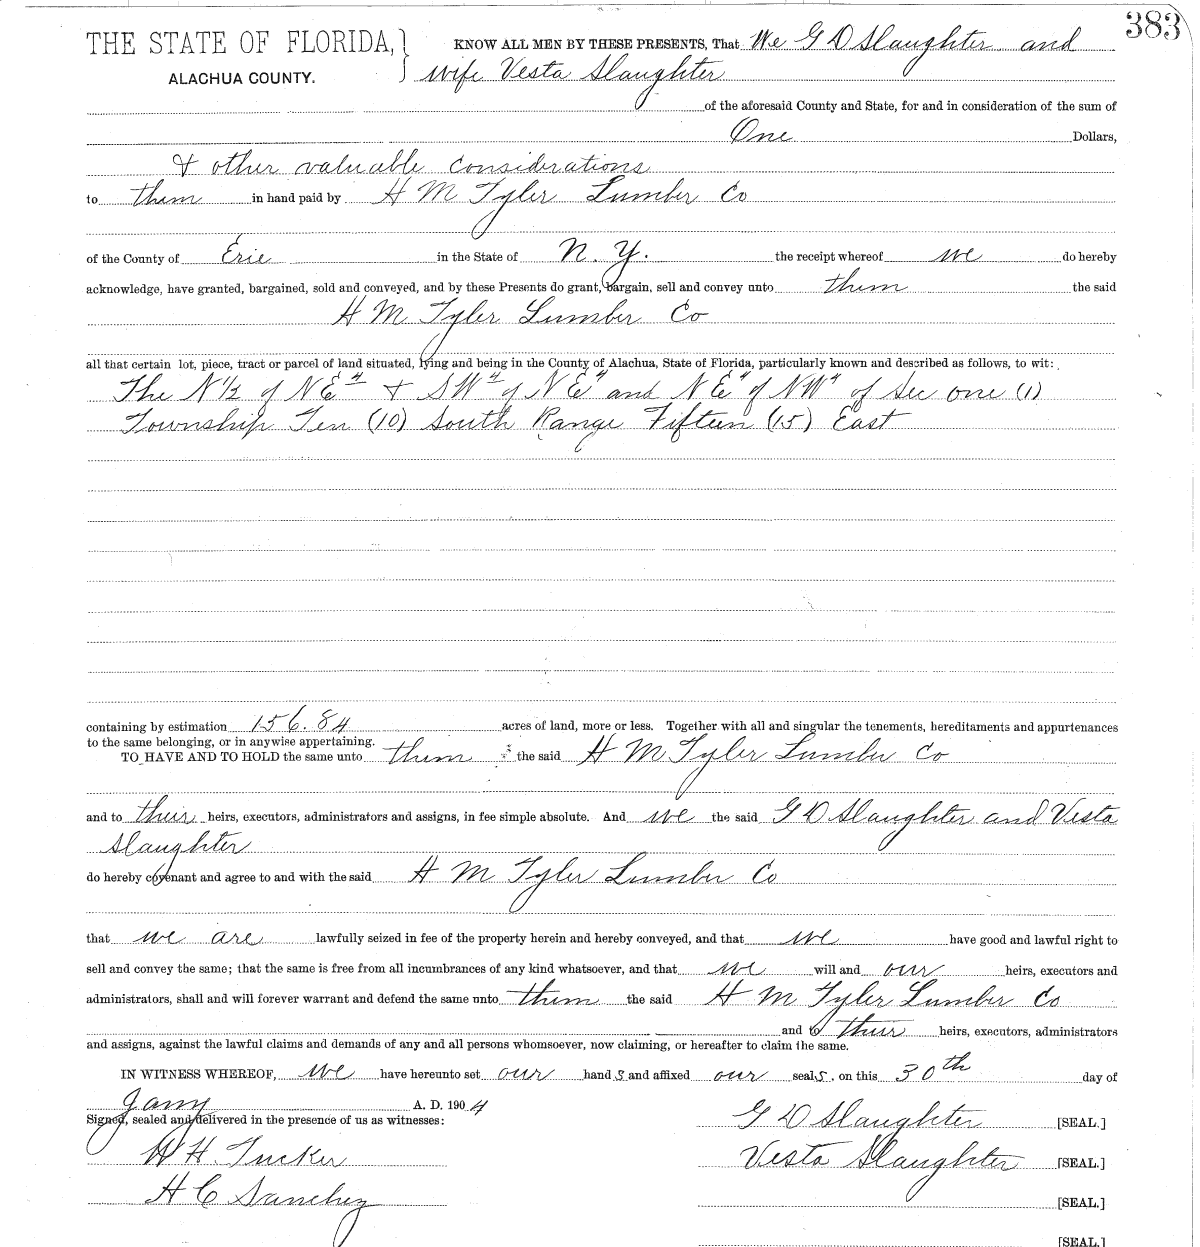 383
THE STATE OF FLORIDA, } KNOW ALL MEN BY THESE PRESENTS, That We G D Slaughter and
ALACHUA COUNTY. wife Vesta Slaughter
of the aforesaid County and State, for and in consideration of the sum of
One Dollars,
& other valuable considerations
to them in hand paid by H M Tyler Lumber Co
of the County of Erie in the State of N. Y. the receipt whereof we do hereby
acknowledge, have granted, bargained, sold and conveyed, and by these Presents do grant, bargain, sell and convey unto them the said
H M Tyler Lumber Co
all that certain lot, piece, tract or parcel of land situated, lying and being in the County of Alachua, State of Florida, particularly known and described as follows, to wit:
The N 1/2 of NE 4 & SW 4 of NE 4 and NE 4 of NW 4 of Sec one (1)
Township Ten (10) South Range Fifteen (15) East
containing by estimation 156.84 acres of land, more or less. Together with all and singular the tenements, hereditaments and appurtenances
to the same belonging, or in anywise appertaining.
TO HAVE AND TO HOLD the same unto them the said H M Tyler Lumber Co
and to their heirs, executors, administrators and assigns, in fee simple absolute. And we the said G D Slaughter and Vesta
Slaughter
do hereby covenant and agree to and with the said H M Tyler Lumber Co
that we are lawfully seized in fee of the property herein and hereby conveyed, and that we have good and lawful right to
sell and convey the same; that the same is free from all incumbrances of any kind whatsoever, and that we will and our heirs, executors and
administrators, shall and will forever warrant and defend the same unto them the said H M Tyler Lumber Co
and to their heirs, executors, administrators
and assigns, against the lawful claims and demands of any and all persons whomsoever, now claiming, or hereafter to claim the same.
IN WITNESS WHEREOF, we have hereunto set our hand s and affixed our seal s. on this 30th day of
Jany A. D. 190 4
Signed, sealed and delivered in the presence of us as witnesses:
G D Slaughter [SEAL.]
W H Tucker Vesta Slaughter [SEAL.]
H C Sanchez [SEAL.]
[SEAL.]